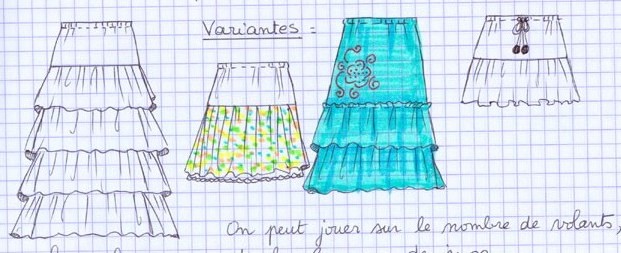 Variantes =
On peut jouer sur le nombre de volants,